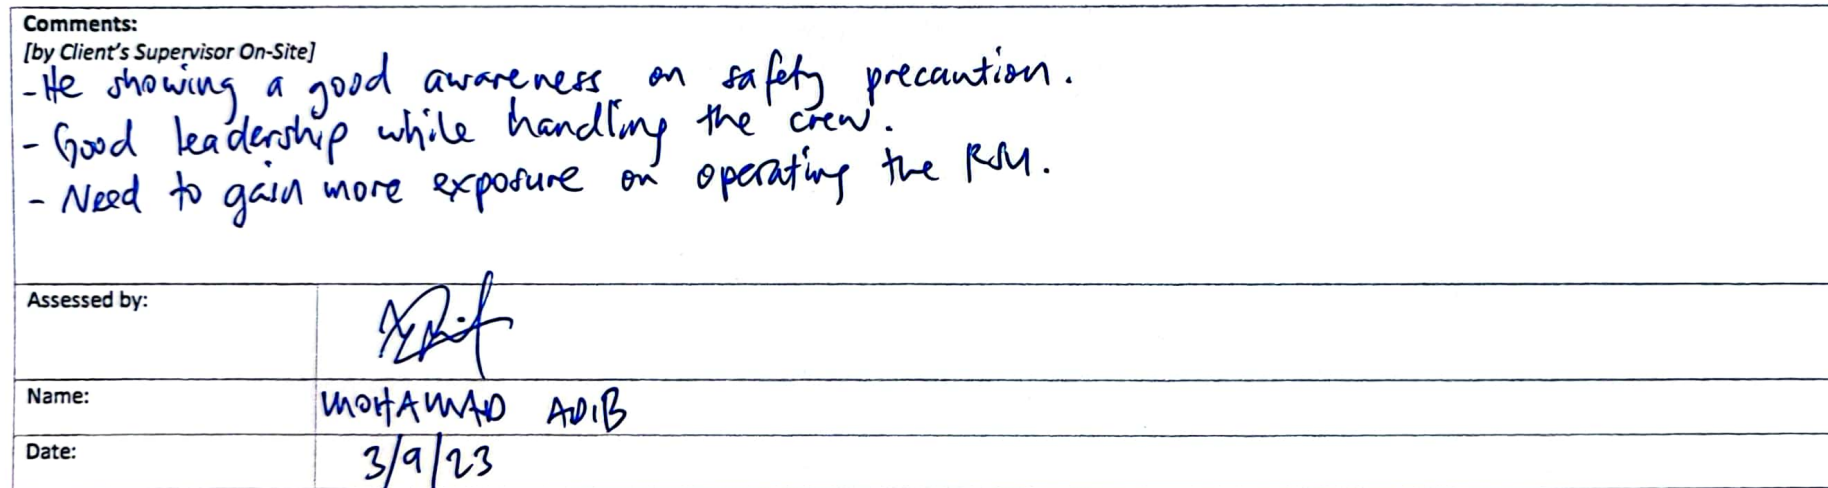 Comments:
[by Client's Supervisor On-Site]
- He showing a good awareness on safety precaution.
- Good leadership while handling the crew.
- Need to gain more exposure on operating the RSU.
Assessed by:
Name: MOHAMAD ADIB
Date: 3/9/23